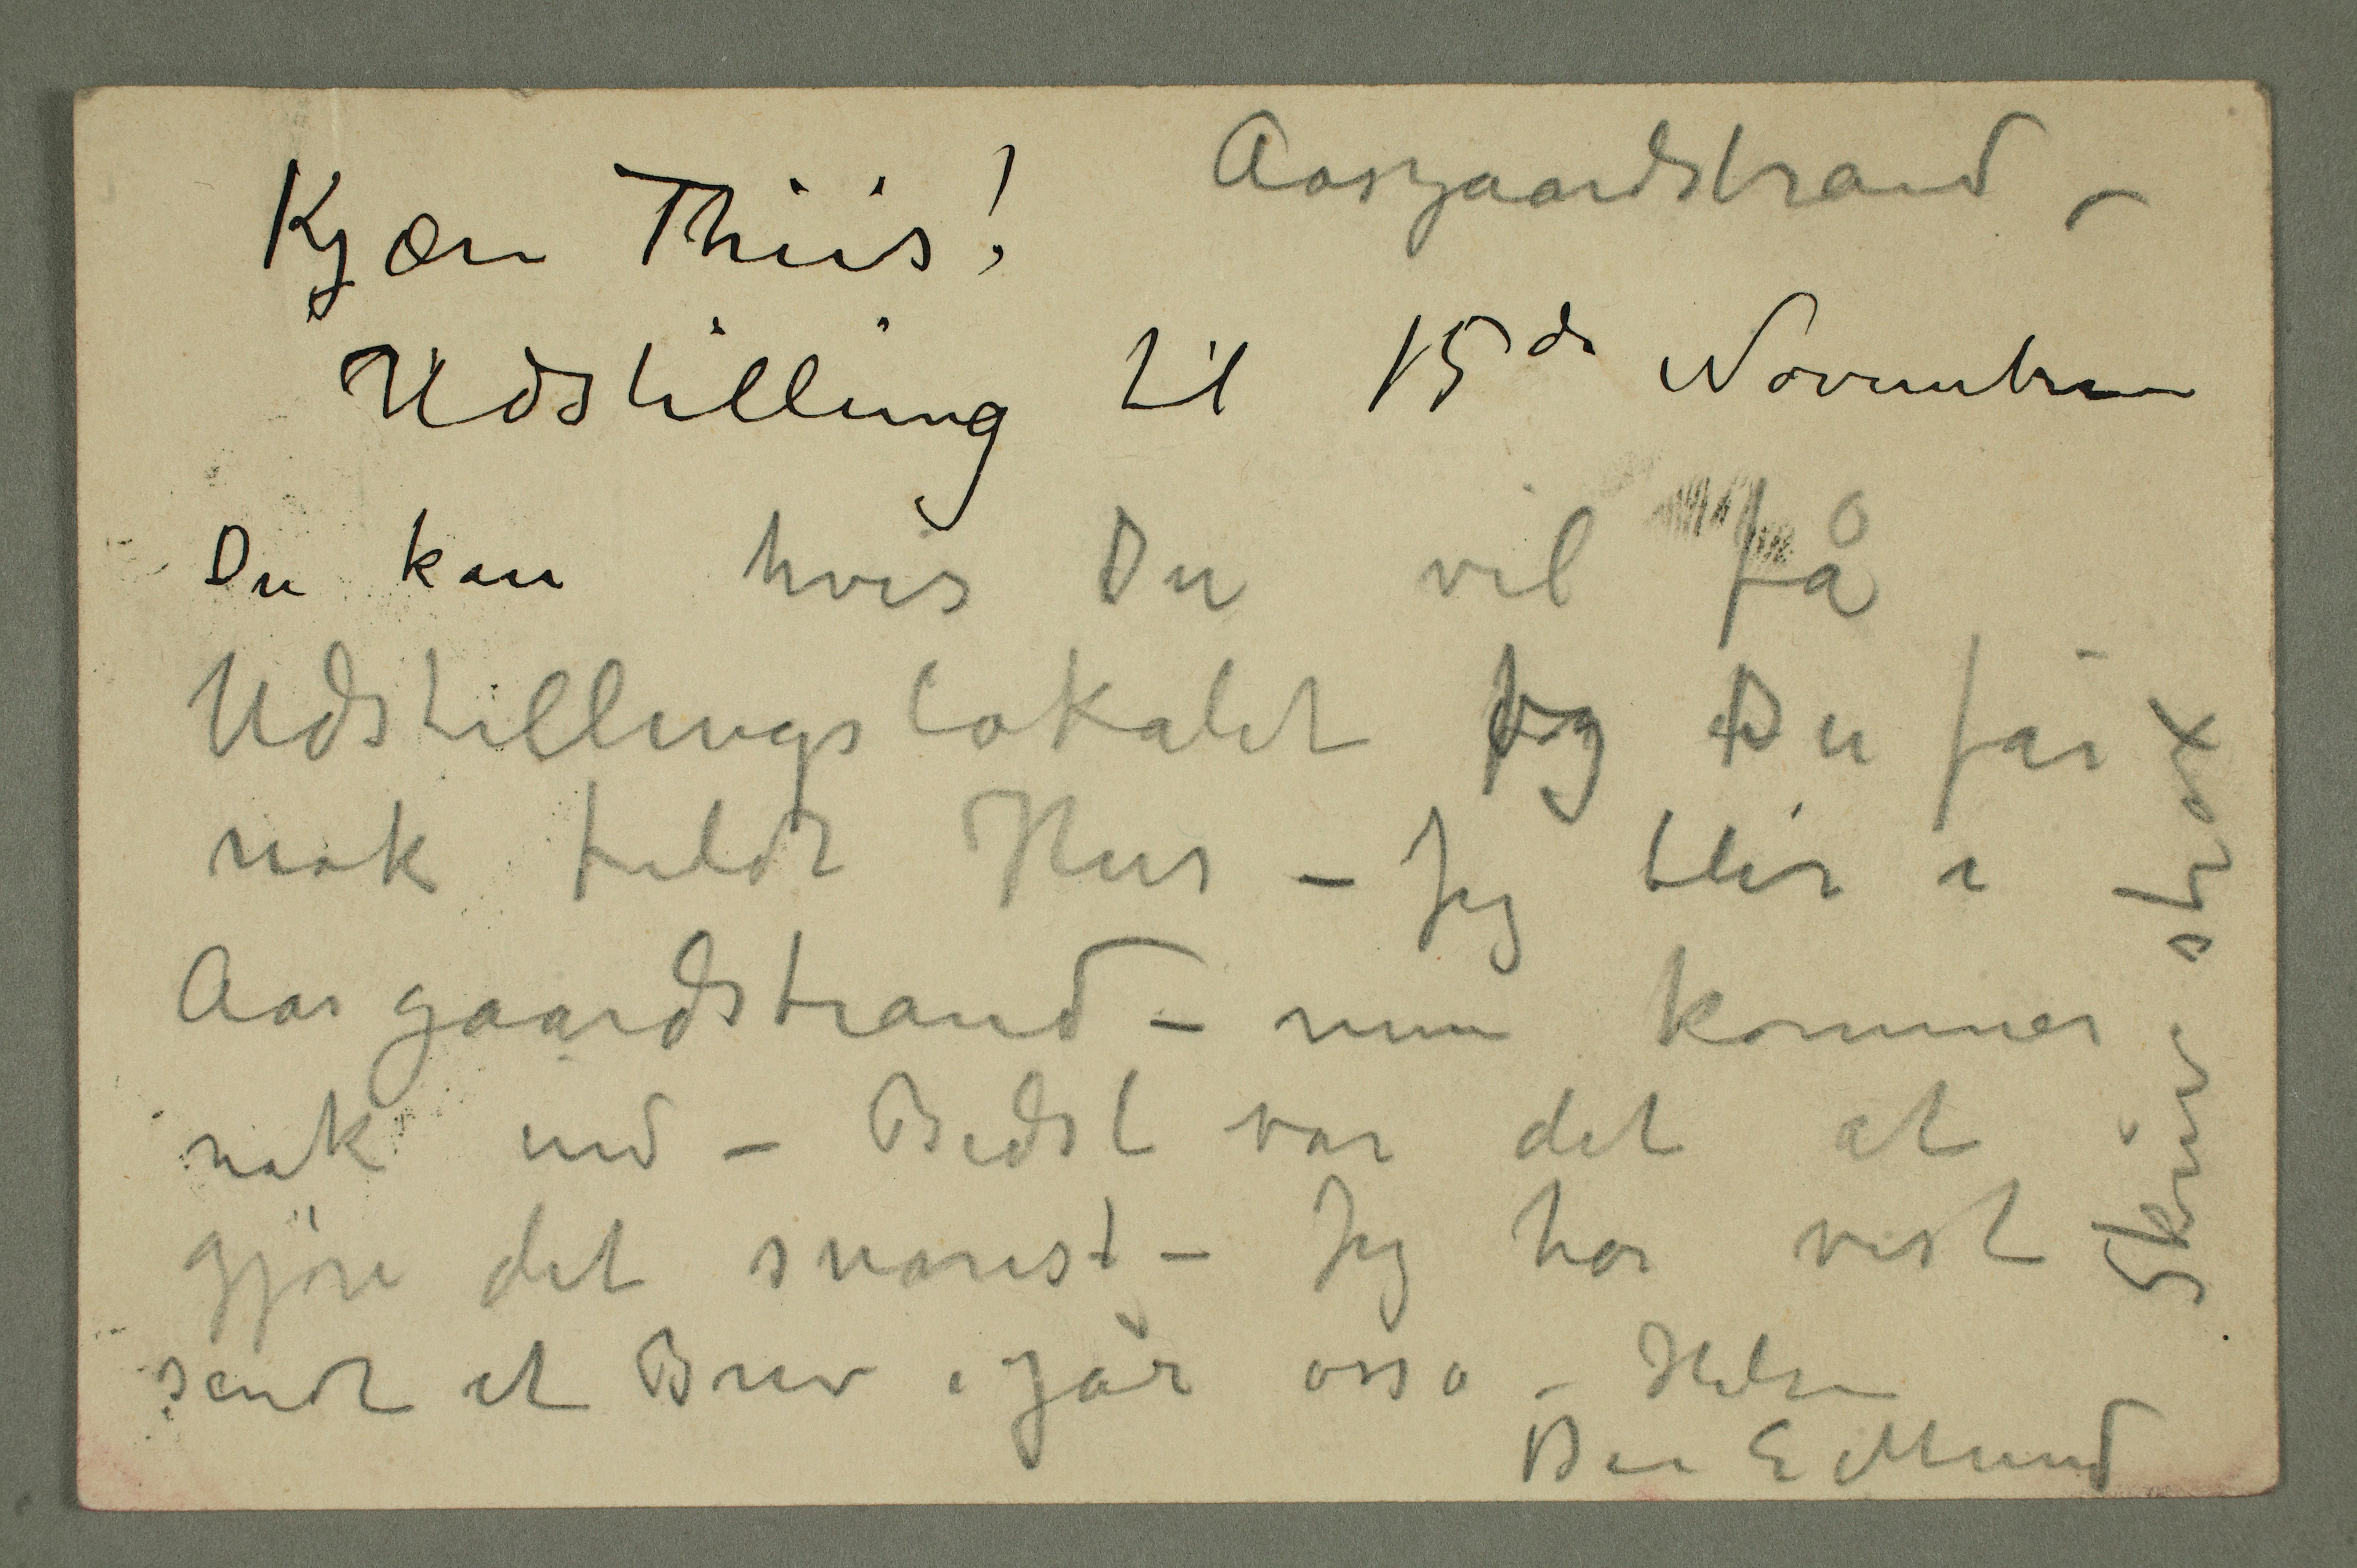 Aasgaardstrand –
Kjære Thiis!
Udstilling til 15de November
Du kan hvis Du vil få
Udstillingslokalet og Du får
nok fuldt Hus – Jeg blir i
Aasgaardstrand – men kommer
nok ind – Bedst var det at
gjöre det snarest – Jeg har vist
sendt et Brev igår osså – Hilsen
Din E Munch
Skriv strax